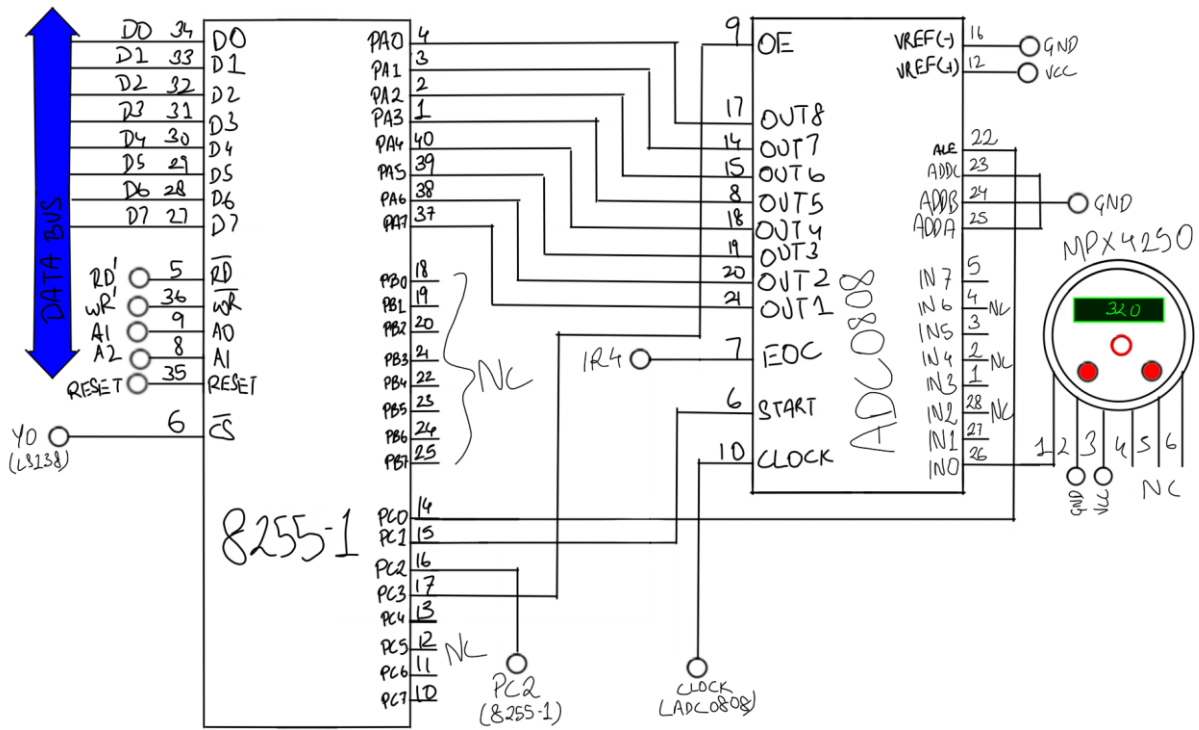 DATA BUS
D0 34 D0
D1 33 D1
D2 32 D2
D3 31 D3
D4 30 D4
D5 29 D5
D6 28 D6
D7 27 D7
RD' 5 RD
WR' 36 WR
A1 9 A0
A2 8 A1
RESET 35 RESET
Y0 6 CS
(LS138)
8255-1
PA0 4
PA1 3
PA2 2
PA3 1
PA4 40
PA5 39
PA6 38
PA7 37
PB0 18
PB1 19
PB2 20
PB3 21
PB4 22
PB5 23
PB6 24
PB7 25
NC
PC0 14
PC1 15
PC2 16
PC3 17
PC4 13
PC5 12
PC6 11
PC7 10
NC
PC2
(8255-1)
9 OE
17 OUT8
14 OUT7
15 OUT6
8 OUT5
18 OUT4
19 OUT3
20 OUT2
21 OUT1
IR4 7 EOC
6 START
10 CLOCK
CLOCK
(ADC0808)
ADC0808
VREF(-) 16 GND
VREF(+) 12 VCC
ALE 22
ADDC 23
ADDB 24 GND
ADDA 25
IN7 5
IN6 4 NC
IN5 3
IN4 2 NC
IN3 1
IN2 28 NC
IN1 27
IN0 26
MPX4250
320
1 2 3 4 5 6
GND
VCC
NC